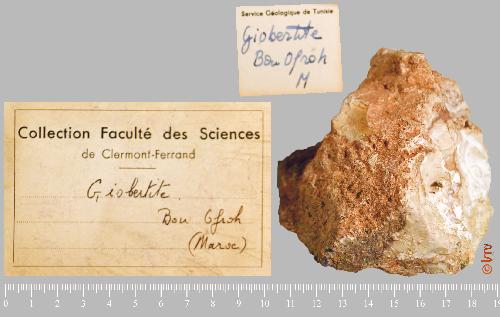 Service Géologique de Tunisie
Giobertite
Bou Ofroh
M
Collection Faculté des Sciences
de Clermont-Ferrand
Giobertite
Bou Ofroh
(Maroc)
0 1 2 3 4 5 6 7 8 9 10 11 12 13 14 15 16 17 18 19